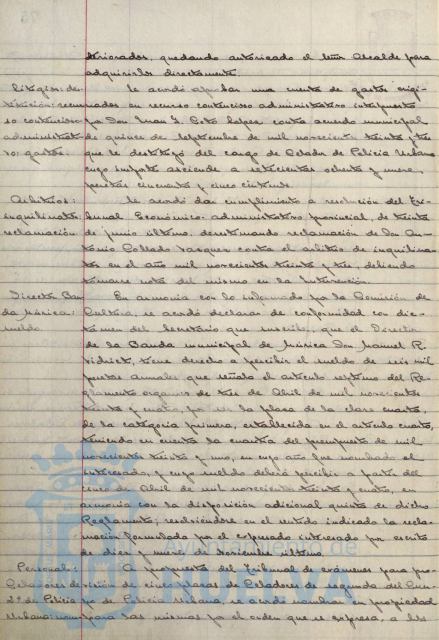 teriorados, quedando autorizado el Señor Alcalde para
adquirirlos directamente.
Litigios: des-
titución: recur-
so contencioso
administrati-
vo: gastos.
Se acordó aprobar una cuenta de gastos origi-
nados en recurso contencioso administrativo interpuesto
por Don Juan Soto López contra acuerdo municipal
de quince de septiembre de mil novecientos treinta y tres
que le destituyó del cargo de Celador de Policía Urbana
cuyo importe asciende a setecientas ochenta y nueve
pesetas cincuenta y cinco céntimos.
Arbitrios:
inquilinatos:
reclamación
Se acordó dar cumplimiento a resolución del Tri-
bunal Económico-administrativo provincial, de treinta
de junio último, desestimando reclamación de Don An-
tonio Collado Vasquez contra el arbitrio de inquilina-
tos en el año mil novecientos treinta y tres, debiendo
tomarse nota del mismo en la Intervención.
Director Ban-
da Música:
sueldo
En armonía con lo informado por la Comisión de
Cultura, se acordó declarar de conformidad con dic-
tamen del Secretario que suscribe, que el Director
de la Banda municipal de Música Don Manuel R.
tiene derecho a percibir el sueldo de seis mil
pesetas anuales que señala el artículo séptimo del Re-
glamento orgánico de tres de Abril de mil novecientos
treinta y cuatro, por ser la plaza de la clase cuarta,
de la categoría primera, establecida en el artículo cuarto,
teniendo en cuenta la cuantía del presupuesto de mil
novecientos treinta y uno, en cuyo año fue nombrado el
interesado, y cuyo sueldo deberá percibir a partir del
cinco de Abril de mil novecientos treinta y cuatro, en
armonía con la disposición adicional quinta de dicho
Reglamento; resolviéndose en el sentido indicado la recla-
mación formulada por el expresado interesado por escrito
de diez y nueve de Noviembre último.
Personal:
Celadores de
2ª de Policía
Urbana: nom-
A propuesta del Tribunal de exámenes para pro-
visión de cinco plazas de Celadores de segunda del Cuer-
po de Policía Urbana, se acordó nombrar en propiedad
para las mismas por el orden que se expresa, a los
Ayuntamiento de
HUELVA